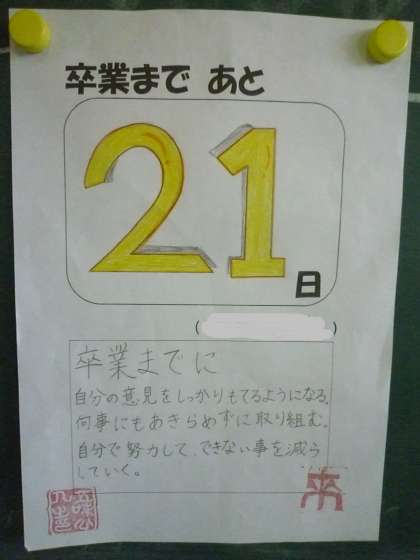 卒業まで あと
21
日
( )
卒業までに
自分の意見をしっかりもてるようになる。
何事にもあきらめずに取り組む。
自分で努力して、できない事を減ら
していく。